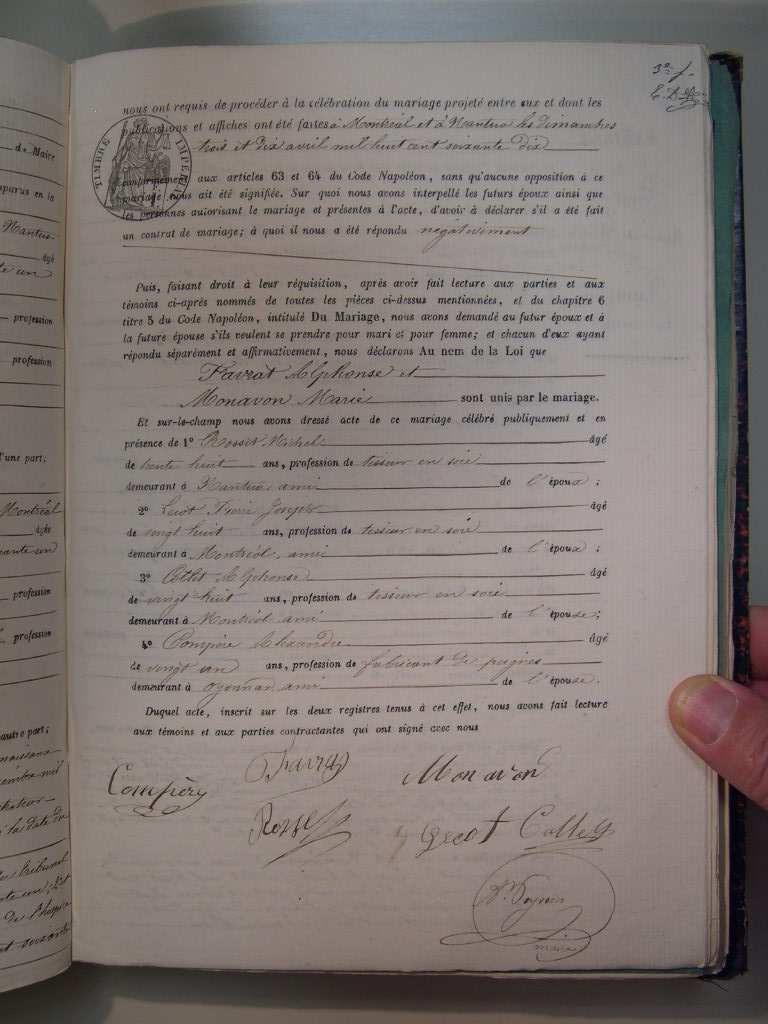 de Maire
comparus en la
Nantua
âgé
profession
profession
d'une part;
Montréal
âgée
profession
profession
d'autre part;
3e
nous ont requis de procéder à la célébration du mariage projeté entre eux et dont les
publications et affiches ont été faites à Montréal et à Nantua les dimanches
trois et dix avril mil huit cent soixante dix
TIMBRE IMPÉRIAL
conformément aux articles 63 et 64 du Code Napoléon, sans qu'aucune opposition à ce
mariage nous ait été signifiée. Sur quoi nous avons interpellé les futurs époux ainsi que
les personnes autorisant le mariage et présentes à l'acte, d'avoir à déclarer s'il a été fait
un contrat de mariage; à quoi il nous a été répondu négativement
Puis, faisant droit à leur réquisition, après avoir fait lecture aux parties et aux
témoins ci-après nommés de toutes les pièces ci-dessus mentionnées, et du chapitre 6
titre 5 du Code Napoléon, intitulé Du Mariage, nous avons demandé au futur époux et à
la future épouse s'ils veulent se prendre pour mari et pour femme; et chacun d'eux ayant
répondu séparément et affirmativement, nous déclarons Au nom de la Loi que
Favrat Alphonse et
Monavon Marie sont unis par le mariage.
Et sur-le-champ nous avons dressé acte de ce mariage célébré publiquement et en
présence de 1° Rosset Michel âgé
de trente huit ans, profession de tisseur en soie
demeurant à Nantua ami de l'époux;
2° Joseph âgé
de vingt huit ans, profession de tisseur en soie
demeurant à Montréal ami de l'époux;
3° Alphonse âgé
de vingt huit ans, profession de tisseur en soie
demeurant à Montréal ami de l'épouse;
4° Compère Alexandre âgé
de vingt un ans, profession de fabricant de peignes
demeurant à Oyonnax ami de l'épouse.
Duquel acte, inscrit sur les deux registres tenus à cet effet, nous avons fait lecture
aux témoins et aux parties contractantes qui ont signé avec nous
Compère Favrat Monavon
Rosset
maire